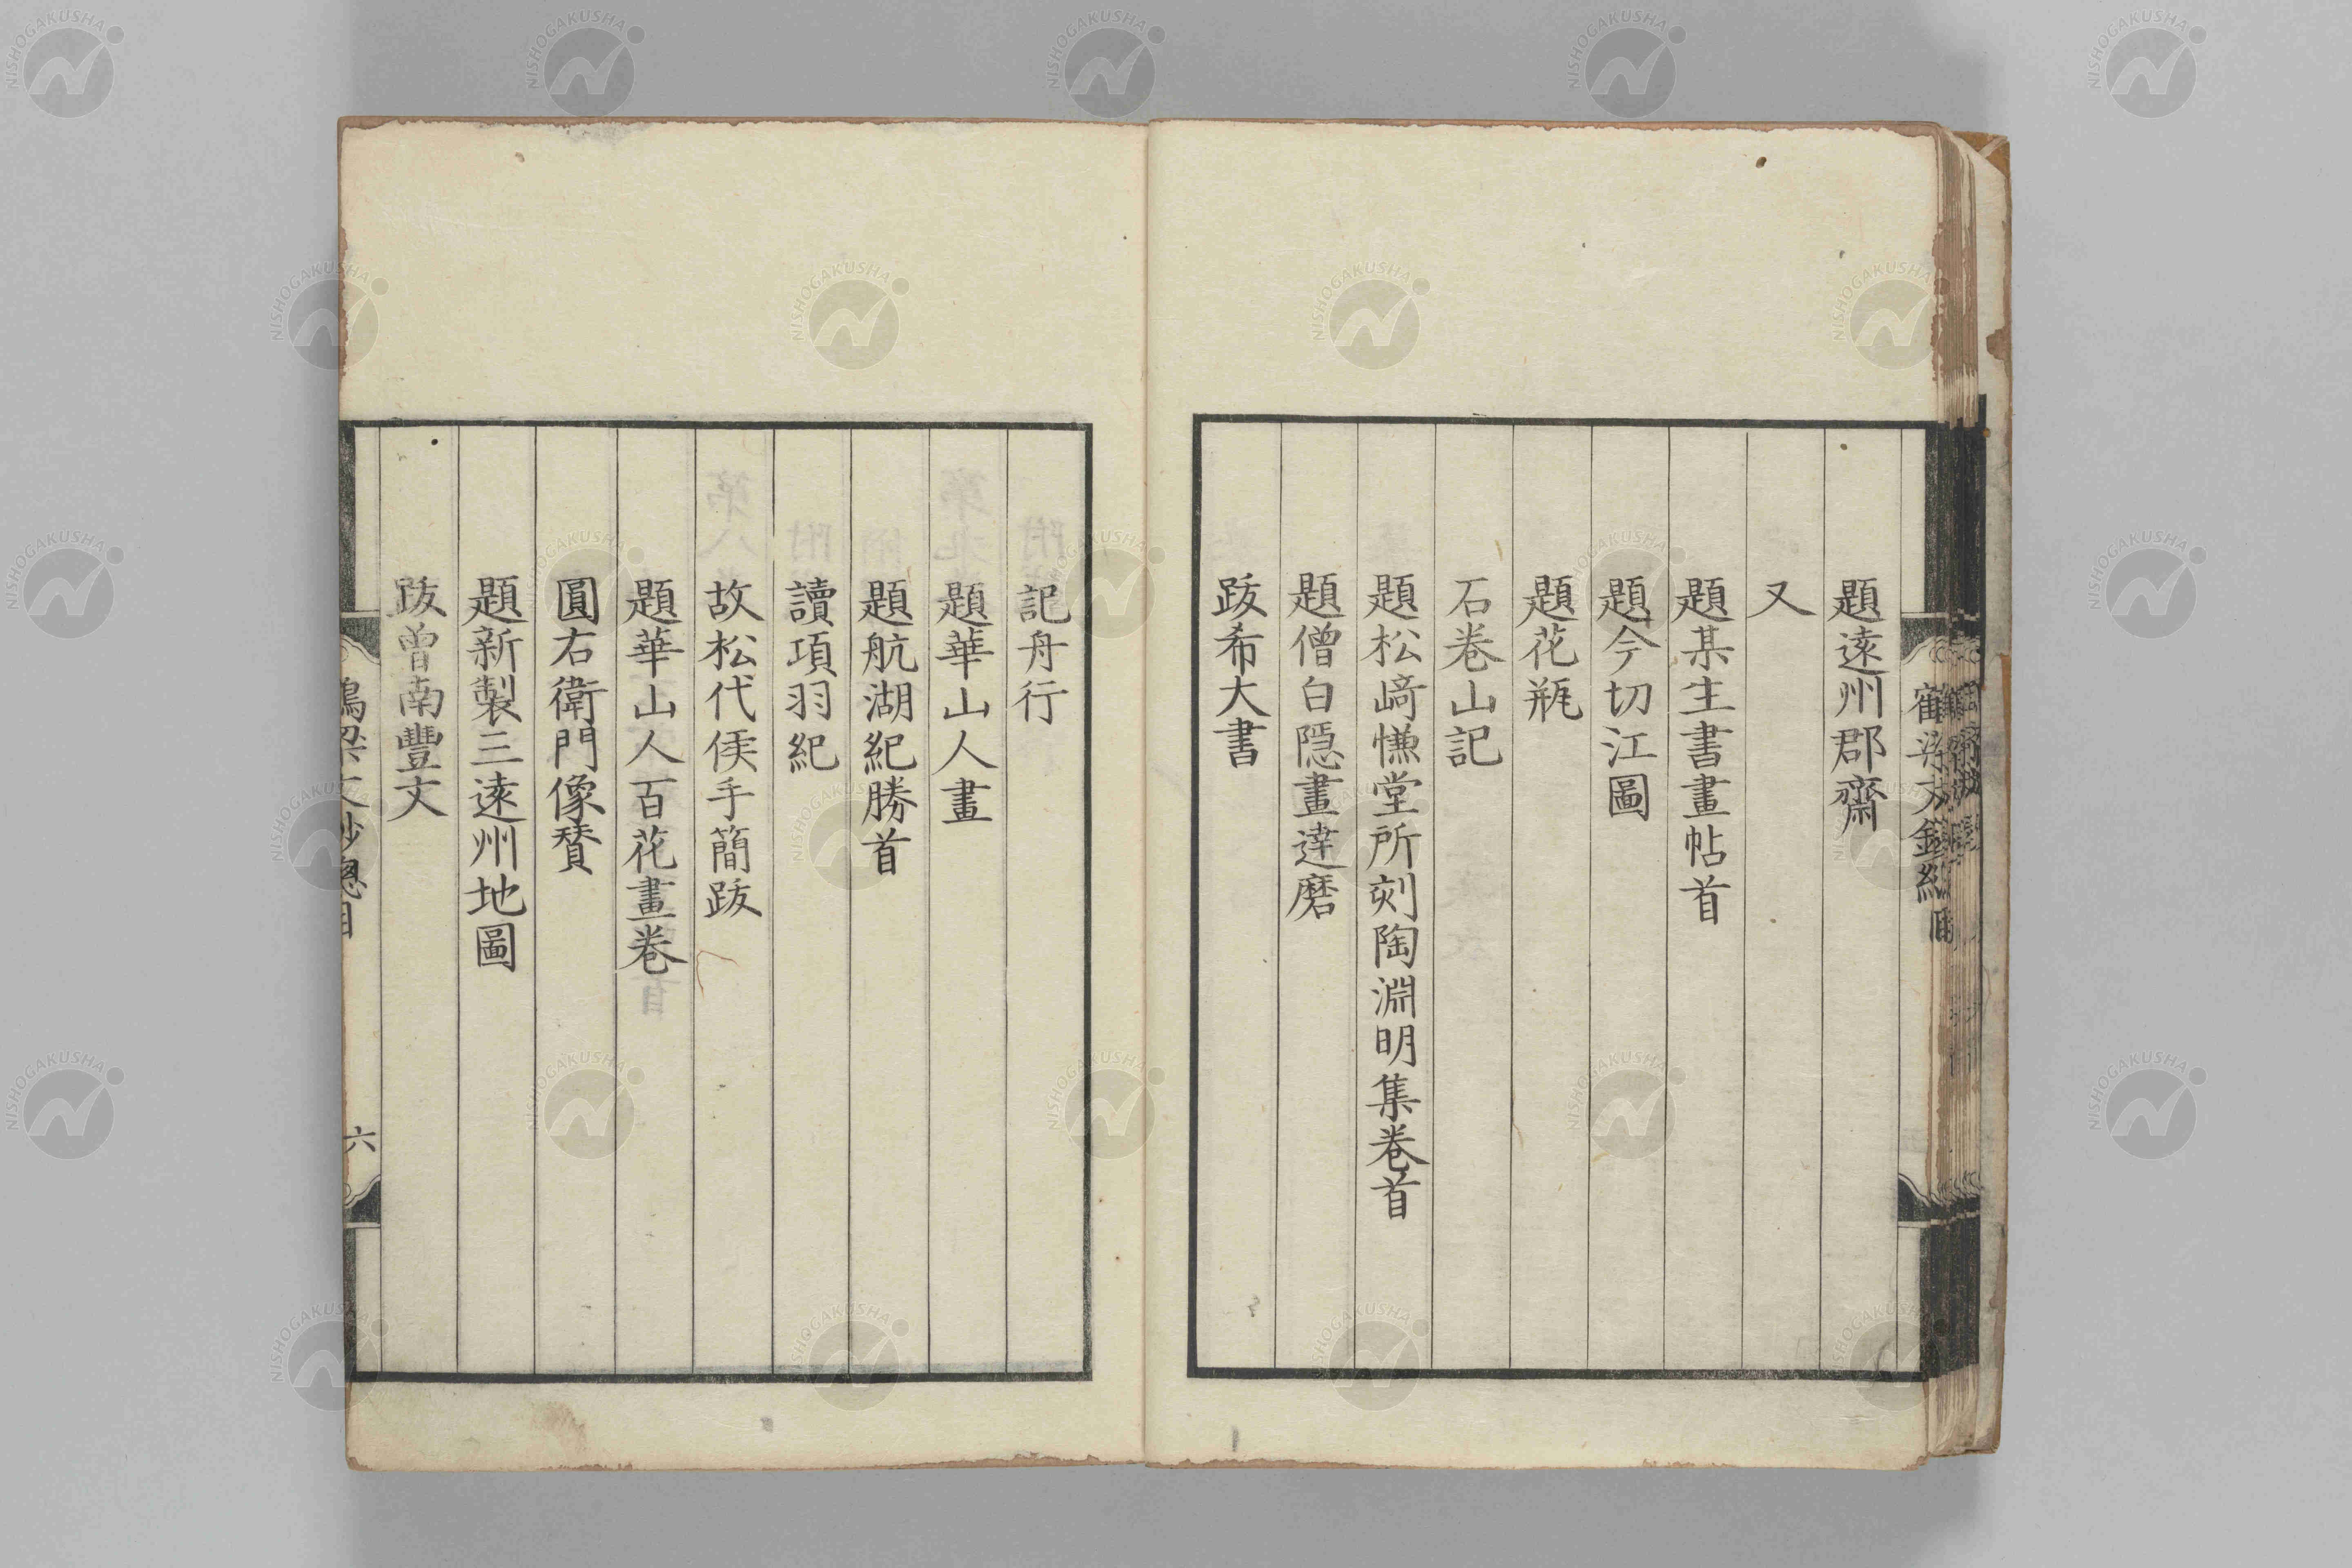 題遠州郡齋
又
題某生書畫帖首
題今切江圖
題花瓶
石巻山記
題松﨑慊堂所刻陶淵明集巻首
題僧白隠畫達磨
跋希大書
記舟行
題華山人畫
題航湖紀勝首
讀項羽紀
故松代侯手簡跋
題華山人百花畫巻
圓右衛門像賛
題新製三遠州地圖
跋曽南豐文
六
NISHOGAKUSHA